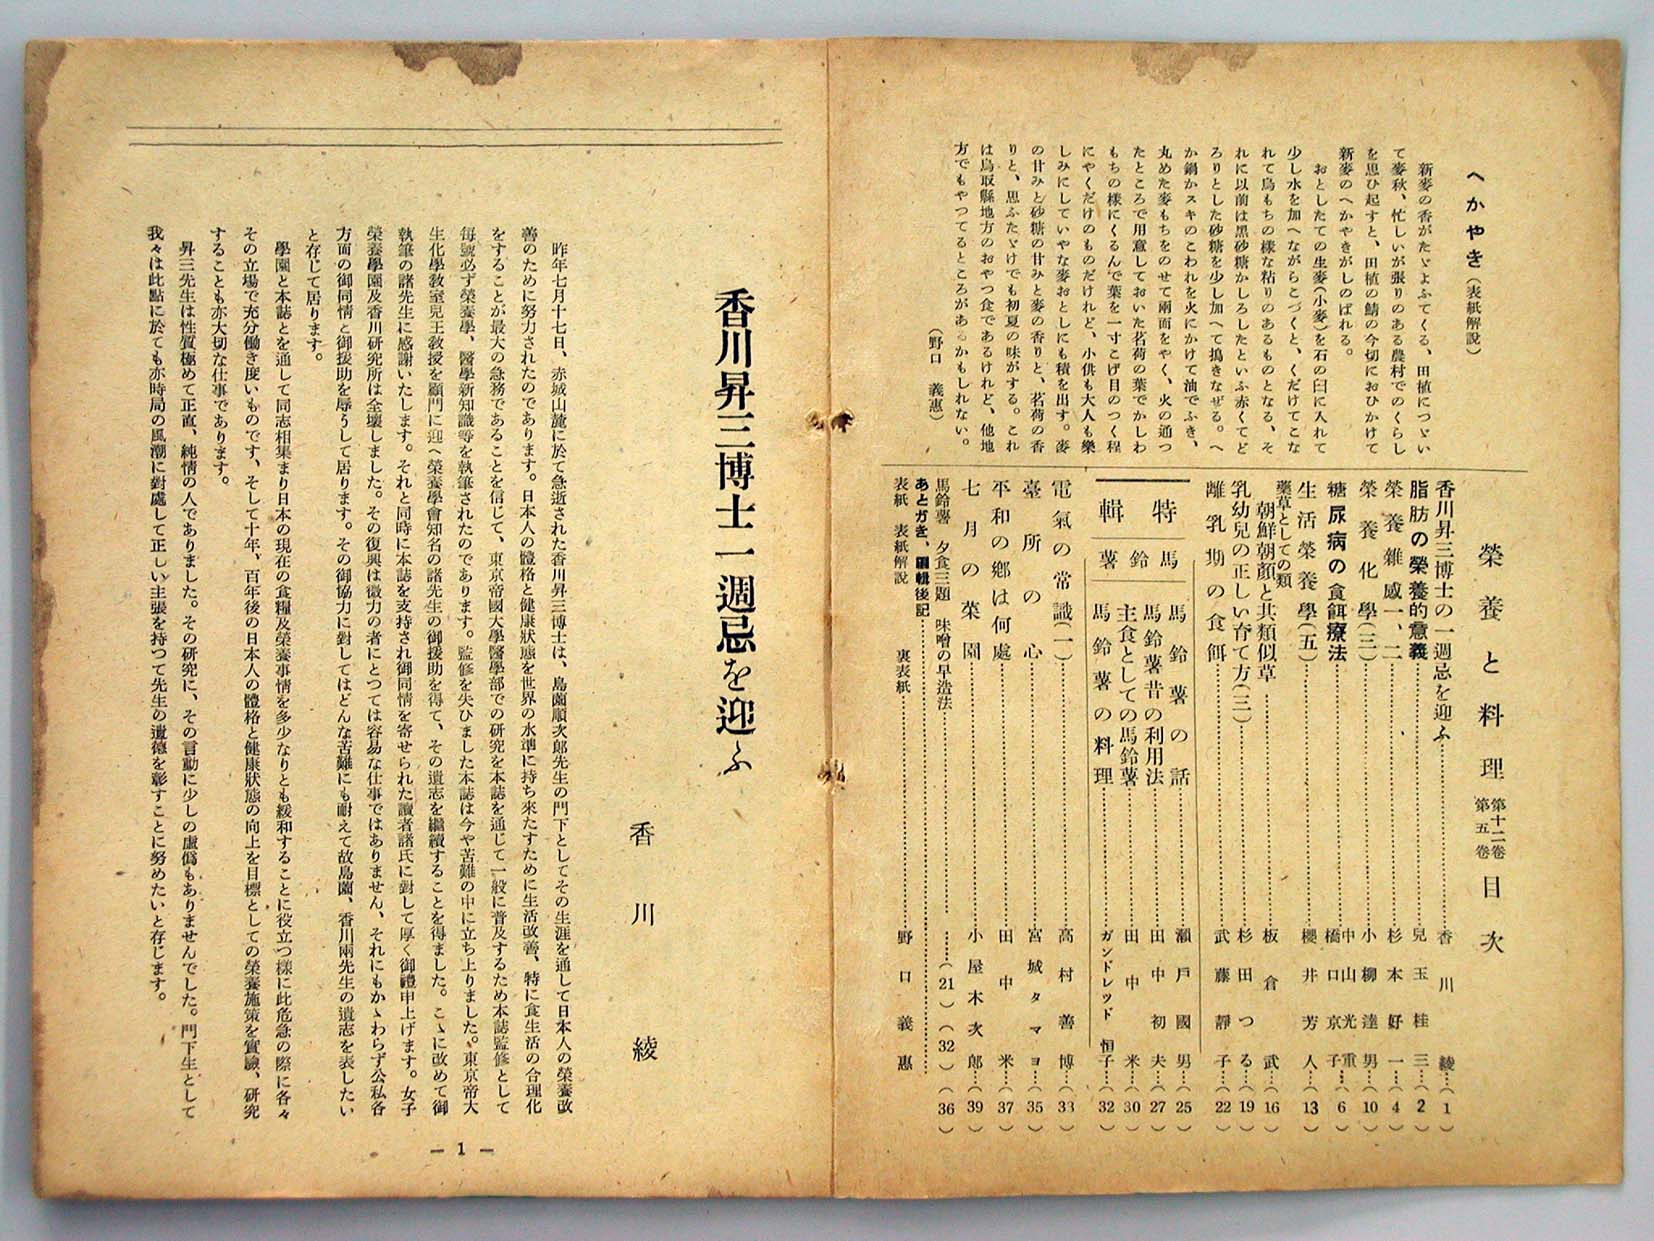 へかやき（表紙解説）
新麥の香がたゞよふてくる、田植につゞい
て麥秋、忙しいが張りのある農村でのくらし
を思ひ起すと、田植の鯖の今切におひかけて
新麥のへかやきがしのばれる。
おとしたての生麥（小麥）を石の臼に入れて
少し水を加へながらこづくと、くだけてこな
れて鳥もちの樣な粘りのあるものとなる、そ
れに以前は黒砂糖かしろしたといふ赤くてど
ろりとした砂糖を少し加へて搗きなぜる。へ
か鍋かスキのこわれを火にかけて油でふき、
丸めた麥もちをのせて兩面をやく、火の通つ
たところで用意しておいた茗荷の葉でかしわ
もちの樣にくるんで葉を一寸こげ目のつく程
にやくだけのものだけれど、小供も大人も樂
しみにしていやな麥おとしにも積を出す。麥
の甘みと砂糖の甘みと麥の香りと、茗荷の香
りと、思ふたゞけでも初夏の味がする。これ
は鳥取縣地方のおやつ食であるけれど、他地
方でもやつてるところがあるかもしれない。
（野口　義惠）
榮養と料理　第十二卷　第五卷　目次
香川昇三博士の一週忌を迎ふ…香川　綾…（1）
脂肪の榮養的意義…兒玉桂三…（2）
榮養雜感一、二…杉本好一…（4）
榮養化學（三）…小柳達男…（10）
糖尿病の食餌療法…中山光重　橋口京子…（6）
生活榮養學（五）…櫻井芳人…（13）
藥草としての類
朝鮮朝顏と共類似草…板倉　武…（16）
乳幼兒の正しい育て方（三）…杉田つる…（19）
離乳期の食餌…武藤靜子…（22）
特輯　馬鈴薯
馬鈴薯の話…瀬戸國男…（25）
馬鈴薯昔の利用法…田中初夫…（27）
主食としての馬鈴薯…田中　米…（30）
馬鈴薯の料理…ガンドレッド　恒子…（32）
電氣の常識（一）…高村善博…（33）
臺所の心…宮城タマヨ…（35）
平和の鄕は何處…田中　米…（37）
七月の菜園…小屋木次郎…（39）
馬鈴薯　夕食三題　味噌の早造法…（21）（32）（36）
あとがき、編輯後記
表紙　表紙解説　裏表紙…野口義惠
香川昇三博士一週忌を迎ふ
香川　綾
昨年七月十七日、赤城山麓に於て急逝された香川昇三博士は、島薗順次郎先生の門下としてその生涯を通して日本人の榮養改
善のために努力されたのであります。日本人の體格と健康狀態を世界の水準に持ち來たすために生活改善、特に食生活の合理化
をすることが最大の急務であることを信じて、東京帝國大學醫學部での研究を本誌を通じて一般に普及するため本誌監修として
毎號必ず榮養學、醫學新知識等を執筆されたのであります。監修を失ひました本誌は今や苦難の中に立ち上りました。東京帝大
生化學教室兒王教授を顧門に迎へ榮養學會知名の諸先生の御援助を得て、その遺志を繼續することを得ました。こゝに改めて御
執筆の諸先生に感謝いたします。それと同時に本誌を支持され御同情を寄せられた讀者諸氏に對して厚く御禮申上げます。女子
榮養學園及香川研究所は全壞しました。その復興は微力の者にとつては容易な仕事ではありません、それにもかゝわらず公私各
方面の御同情と御援助を辱うして居ります。その御協力に對してはどんな苦難にも耐えて故島薗、香川兩先生の遺志を表したい
と存じて居ります。
學園と本誌とを通して同志相集まり日本の現在の食糧及榮養事情を多少なりとも緩和することに役立つ樣に此危急の際に各々
その立場で充分働き度いものです、そして十年、百年後の日本人の體格と健康狀態の向上を目標としての榮養施策を實驗、研究
することも亦大切な仕事であります。
昇三先生は性質極めて正直、純情の人でありました。その研究に、その言動に少しの虛僞もありませんでした。門下生として
我々は此點に於ても亦時局の風潮に對處して正しい主張を持つて先生の遺德を彰すことに努めたいと存じます。
— 1 —